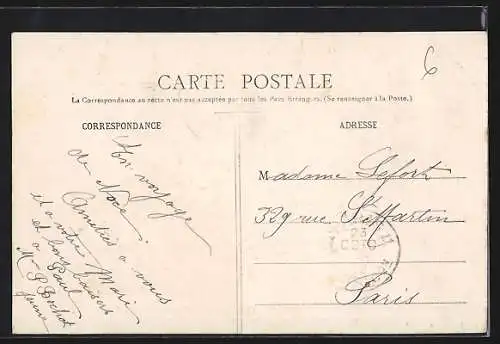 6
CARTE POSTALE
La Correspondance au recto n'est pas acceptée par tous les Pays Etrangers. (Se renseigner à la Poste.)
CORRESPONDANCE
En voyage
de Noce
Amitiés à vous
et à votre Mari
et bons baisers
à Paul
M P
jeune
ADRESSE
Madame Lefort
329 rue St Martin
Paris
11
23
OCT